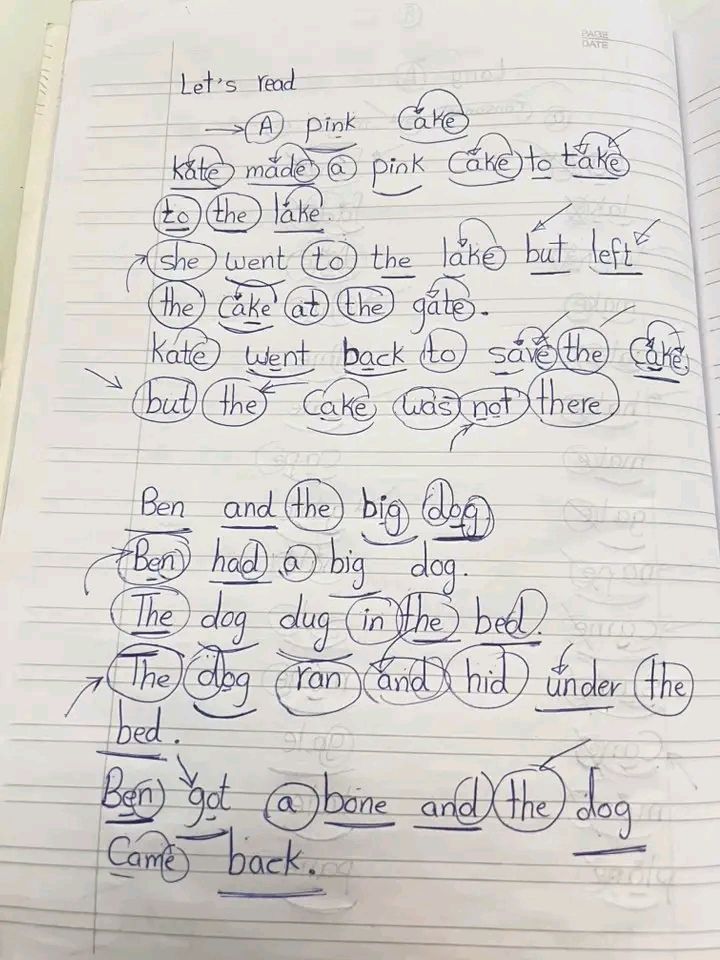 PAGE
DATE
Let's read
A pink Cake
kate made a pink Cake to take
to the lake.
she went to the lake but left
the cake at the gate.
kate went back to save the Cake
but the Cake was not there
Ben and the big dog
Ben had a big dog.
The dog dug in the bed.
The dog ran and hid under the
bed.
Ben got a bone and the dog
Came back.